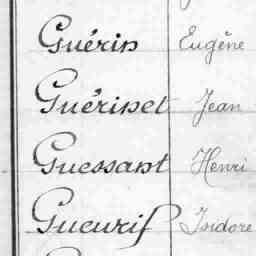 Guérin Eugène
Guérinet Jean
Guessant Henri
Gueurif Isidore